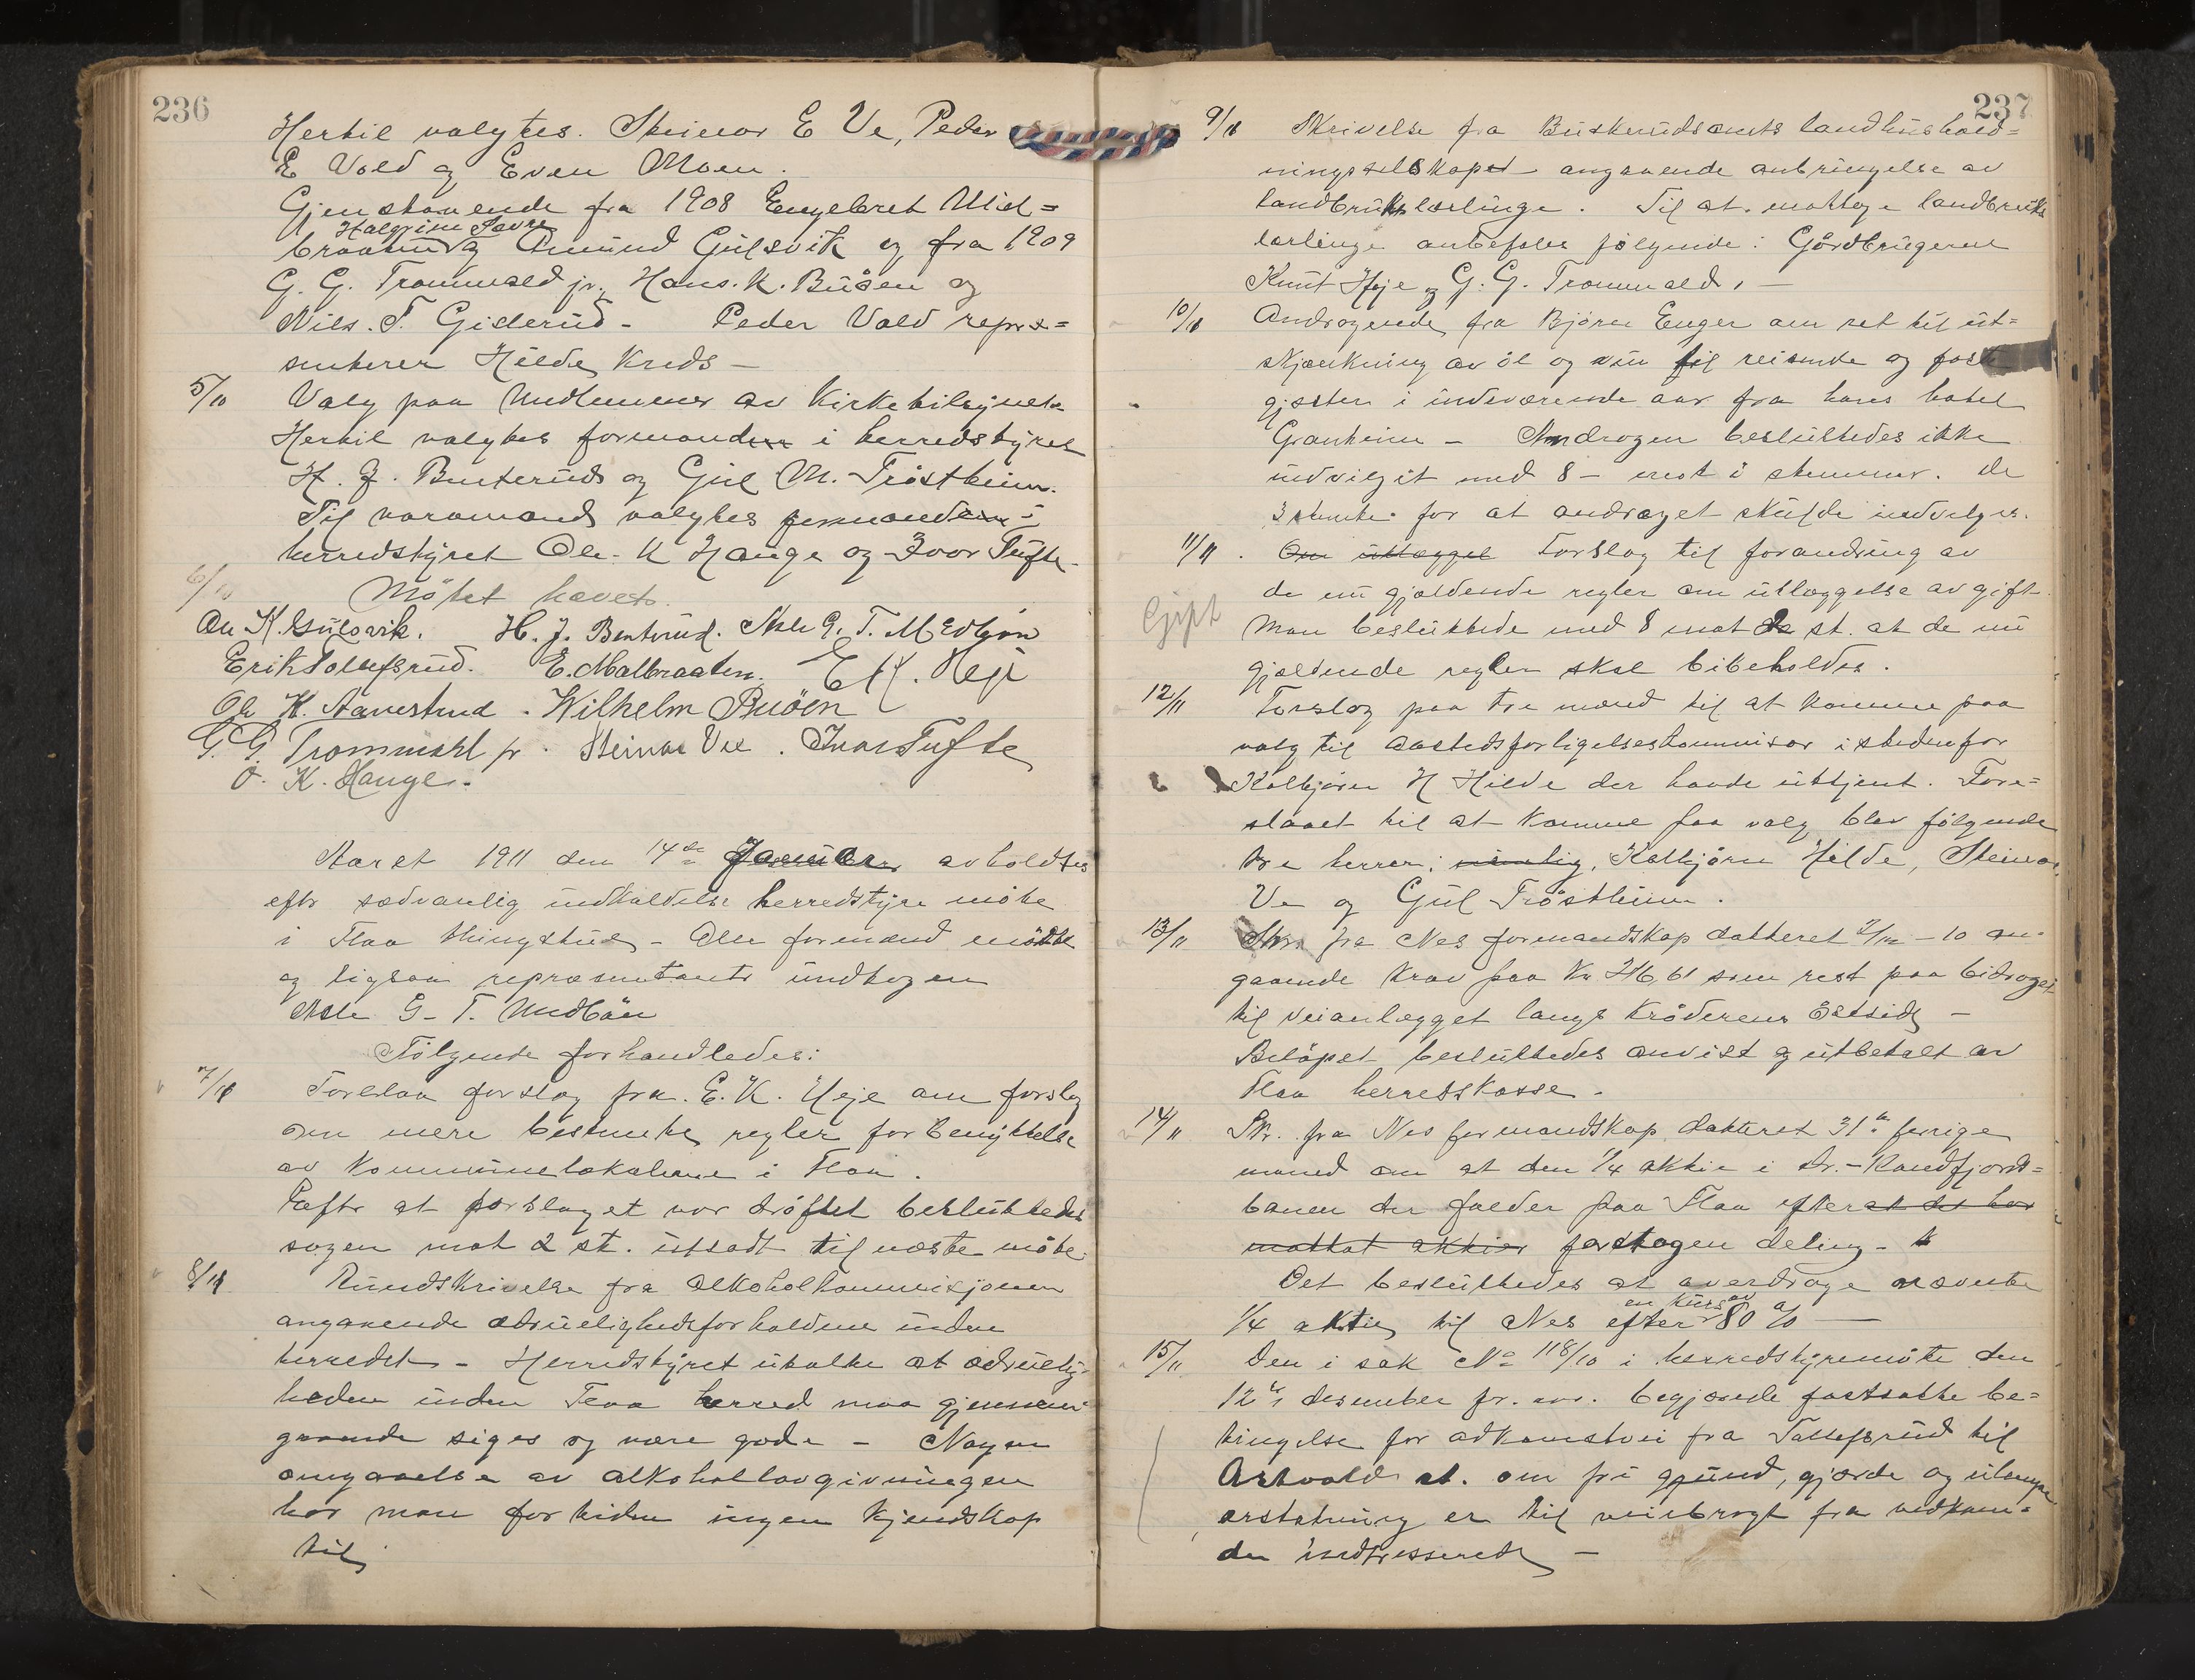 236
Hertil valgtes. Steinar E Ve, Peder
E Vold og Even Moen.
Gjenstaaende fra 1908 Engebret Mid=
Halgrim Sævre
braaten og Amund Gulsvik og fra 1909
G. G. Trommald jr. Hans. K. Buåen og
Nils. T. Gislerud - Peder Vold repræ=
senterer Hilde Kreds -
5/10 Valg paa Medlemmer av Kirketilsynet
Hertil valgtes formanden i herredstyret
H. J. Benterud og Gul M. Trøstheim.
Til varamand valgtes formanden i
herredstyret Ole. K Hauge og Ivar Tufte.
6/10 Møtet hævet.
Ole K. Gulsvik. H. J. Bentrud. Asle G. T. Medbøn
Erik Tollefsrud. E. Malbraaten. E. K. Heje
Ole K. Aavestrud. Wilhelm Buöen
G. G. Trommald jr. Steinar Vee. Ivar Tufte
O. K. Hauge.
Aaret 1911 den 14de Januar avholdtes
eftr sedvanlig indkaldelse herredstyre møte
i Flaa thingstue - Alle formænd mødte
og ligsaa repræsentantr undtagen
Asle G. T. Medbön
Følgende forhandledes:
7/11 Forelaa forslag fra E. K. Heje om forslag
om mere bestemte regler for benyttelse
av Kommunelokalerne i Flaa.
Eeftr at forslaget var drøftet besluttedes
sagen mot 2 st. utsadt til næste møte.
8/11 Rundskrivelse fra Alkoholkommisjonen
angaaende ædruelighedsforholdene inden
herredet - Herredstyret uttalte at ædruelig-
heden inden Flaa herred maa gjennem-
gaaende siges og være gode - Nogen
omgaaelse av alkohollovgivningen
har man for tiden ingen kjendskap
til
237
9/11 Skrivelse fra Buskerudsamts landhushold=
ningsselskapet angaaende anbringelse av
landbrukslærlinge. Til at mottage landbruks
lærlinge anbefales følgende: Gårdbrugerne
Knut Heje og G. G. Trommald, -
10/11 Andragende fra Bjørn Enger om ret til ut=
skjænkning av øl og vin til reisende og faste
gjæster i indeværende aar fra hans hotel
Granheim - Andragen besluttedes ikke
indvilgit med 8 - mot i stemmer. de
3 stemte for at andraget skulde indvelges.
11/11. Om utlægget Forslag til forandring av
de nu gjældende regler om utlæggelse av gift
Gift Man besluttede med 8 mot 2 st. at de nu
gjældende regler skal bibeholdes.
12/11 Forslag paa tre mænd til at komme paa
valg til Aastedsforligelseskommisær istedenfor
Kolbjørn H Hilde der havde uttjent. Fore=
slaaet til at komme paa valg blev følgende
tre herrer: nemlig, Kolbjørn Hilde, Steinar
Ve og Gul Trøstheim.
13/11 Skr. fra Nes formandskap datteret 2/12 - 10 an-
gaaende krav paa Kr 246,61 som rest paa bidraget
til veianlægget langs Krøderens Østside -
Beløpet besluttedes anvist og utbetalt av
Flaa herredskasse.
14/11 Skr. fra Nes formandskap datteret 31te forrige
maaned om at den 1/4 aktie i Kr. - Randfjords=
banen der falder paa Flaa efter at der har
mottat aktier foretagen deling -
Det besluttedes at overdrage nævnte
en kurs av
1/4 aktie til Nes efter 80 % —
15/11 Den i sak No 118/10 i herredstyremøte den
12te desember fr. aar. begjærede fastsatte be=
tingelse for adkomstvei fra Tollefsrud til
Askvold st. om fri grund, gjærde og ulempe
erstatning er til veiebragt fra vedkom=
de intresserede —